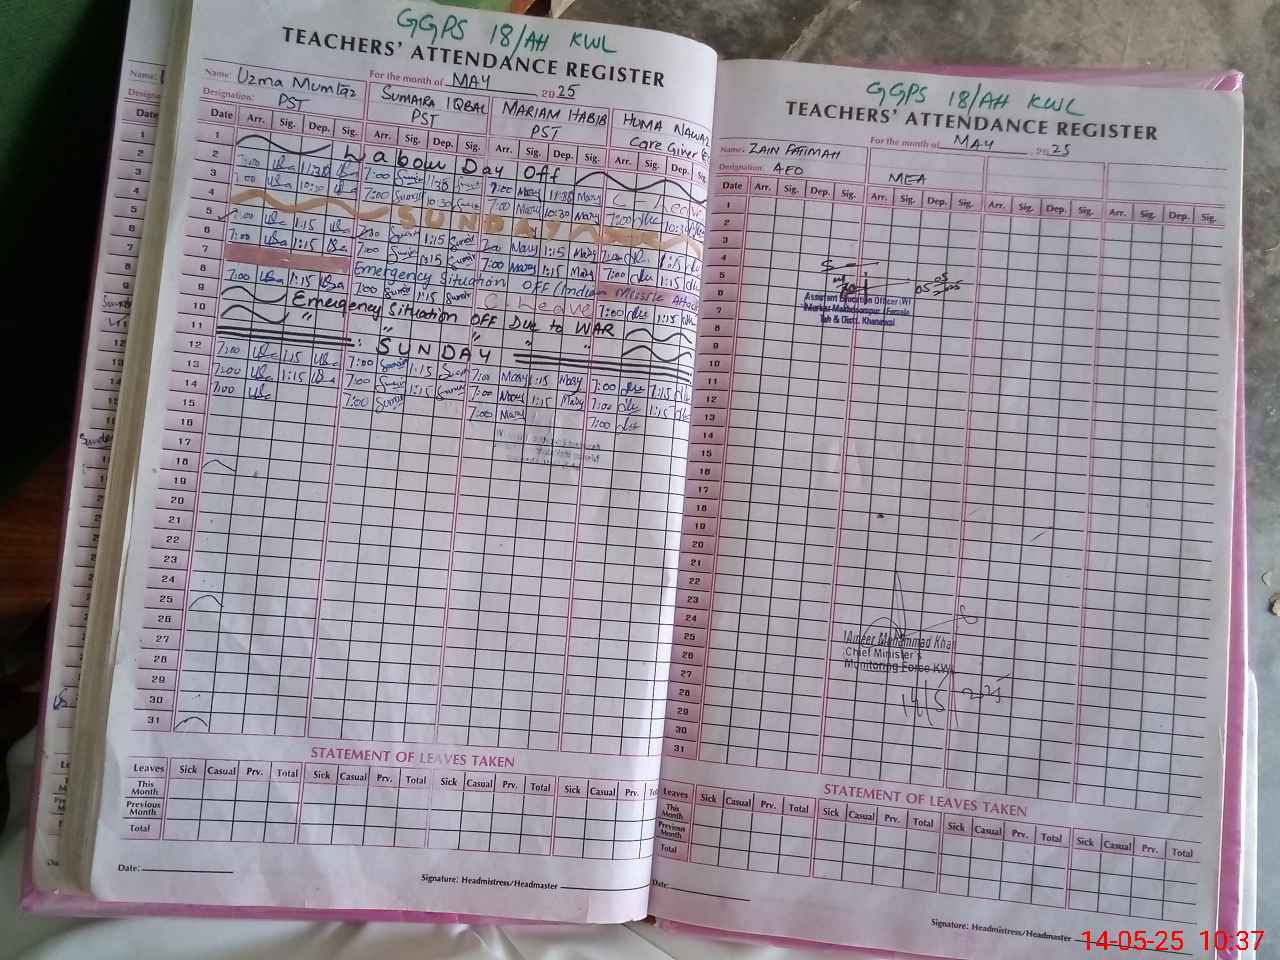 GGPS 18/AH KWL
TEACHERS' ATTENDANCE REGISTER
Name: Uzma Mumtaz
For the month of MAY 2025
Designation: PST
SUMAIRA IQBAL
PST
MARIAM HABIB
PST
HUMA NAWAZ
Care Giver
Date Arr. Sig. Dep. Sig. Arr. Sig. Dep. Sig. Arr. Sig. Dep. Sig. Arr. Sig. Dep. Sig.
1 Labour Day Off
2 7:00 11:30 7:00 11:30 7:00 11:30 C-Leave
3 7:00 10:30 7:00 10:30 7:00 10:30 7:00 10:30
4 SUNDAY
5 7:00 1:15 7:00 1:15 7:00 1:15 7:00 1:15
6 7:00 1:15 7:00 1:15 7:00 1:15 7:00 1:15
7 Emergency Situation OFF (Indian Missile Attack
8 7:00 1:15 7:00 1:15 C-Leave 7:00 1:15
9 Emergency Situation OFF Due to WAR
10 " " " "
11 SUNDAY
12 7:00 1:15 7:00 1:15 7:00 1:15 7:00 1:15
13 7:00 1:15 7:00 1:15 7:00 1:15 7:00 1:15
14 7:00 7:00 7:00 7:00
15
16
17
18
19
20
21
22
23
24
25
26
27
28
29
30
31
STATEMENT OF LEAVES TAKEN
Leaves Sick Casual Prv. Total Sick Casual Prv. Total Sick Casual Prv. Total Sick Casual Prv.
This Month
Previous Month
Total
Date:
Signature: Headmistress/Headmaster
GGPS 18/AH KWL
TEACHERS' ATTENDANCE REGISTER
For the month of MAY 2025
Name: ZAIN FATIMAH
Designation: AEO
MEA
Date Arr. Sig. Dep. Sig. Arr. Sig. Dep. Sig. Arr. Sig. Dep. Sig. Arr. Sig. Dep. Sig.
1
2
3
4
5
6
7
8
9
10
11
12
13
14
15
16
17
18
19
20
21
22
23
24
25
26
27
28
29
30
31
Assistant Education Officer (W)
Markaz Makhdoompur (Female
Teh & Distt. Khanewal
Ameer Mohammad Khan
Chief Minister's
Monitoring Force KWL
14/5/2025
STATEMENT OF LEAVES TAKEN
Leaves Sick Casual Prv. Total Sick Casual Prv. Total Sick Casual Prv. Total Sick Casual Prv. Total
This Month
Previous Month
Total
Date:
Signature: Headmistress/Headmaster
14-05-25 10:37